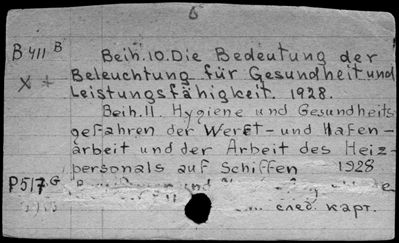 6
B 411 B
Beih. 10. Die Bedeutung der
Beleuchtung für Gesundheit und
Leistungsfähigkeit. 1928.
Beih. 11. Hygiene und Gesundheits
gefahren der Werft- und Hafen-
arbeit und der Arbeit des Heiz-
personals auf Schiffen 1928
P517 G
и
след. карт.